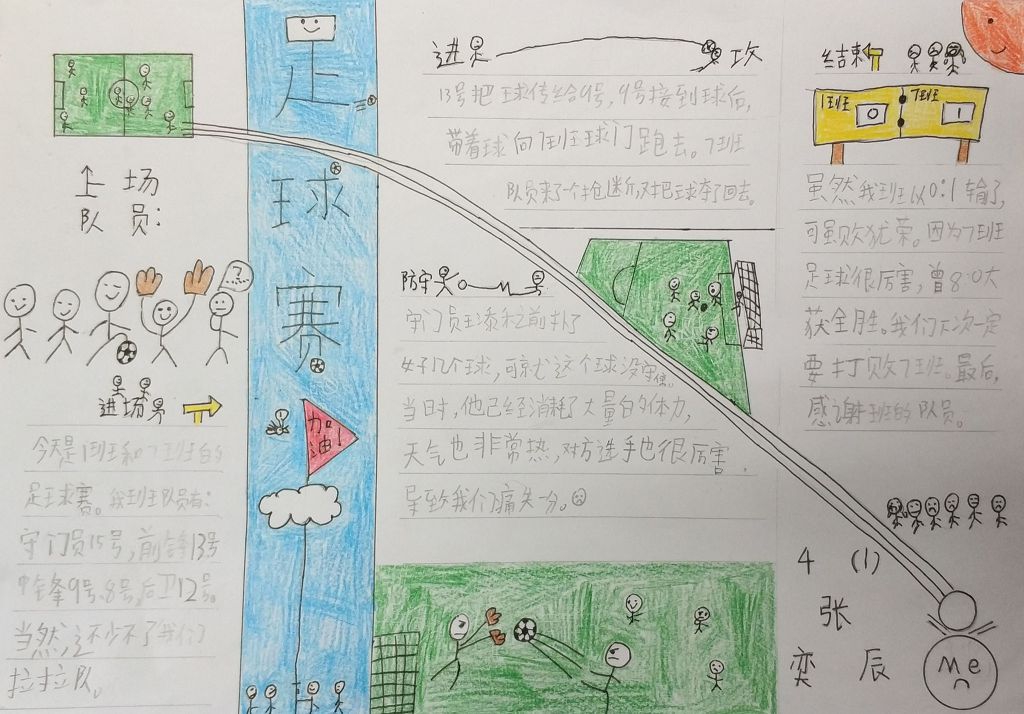 足球赛
加油
上场
队员：
进场
今天是1班和7班的
足球赛。我班队员有：
守门员15号，前锋13号
中锋9号、8号，后卫12号。
当然，还少不了我们
拉拉队。
进攻
13号把球传给9号，9号接到球后，
带着球向7班球门跑去。7班
队员来了个抢断，又把球夺了回去。
防守
守门员王添和之前扑了
好几个球，可就这个球没守住。
当时，他已经消耗了大量的体力，
天气也非常热，对方选手也很厉害，
导致我们痛失一分。
结束
1班 7班
0 1
虽然我班以0:1输了，
可虽败犹荣。因为7班
足球很厉害，曾8:0大
获全胜。我们下次一定
要打败7班。最后，
感谢班的队员。
4 (1)
张
奕辰
Me